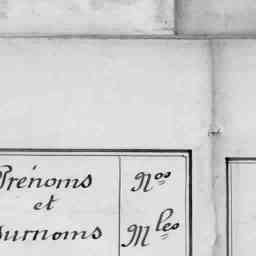 Prénoms
et
surnoms
Nos
Mles